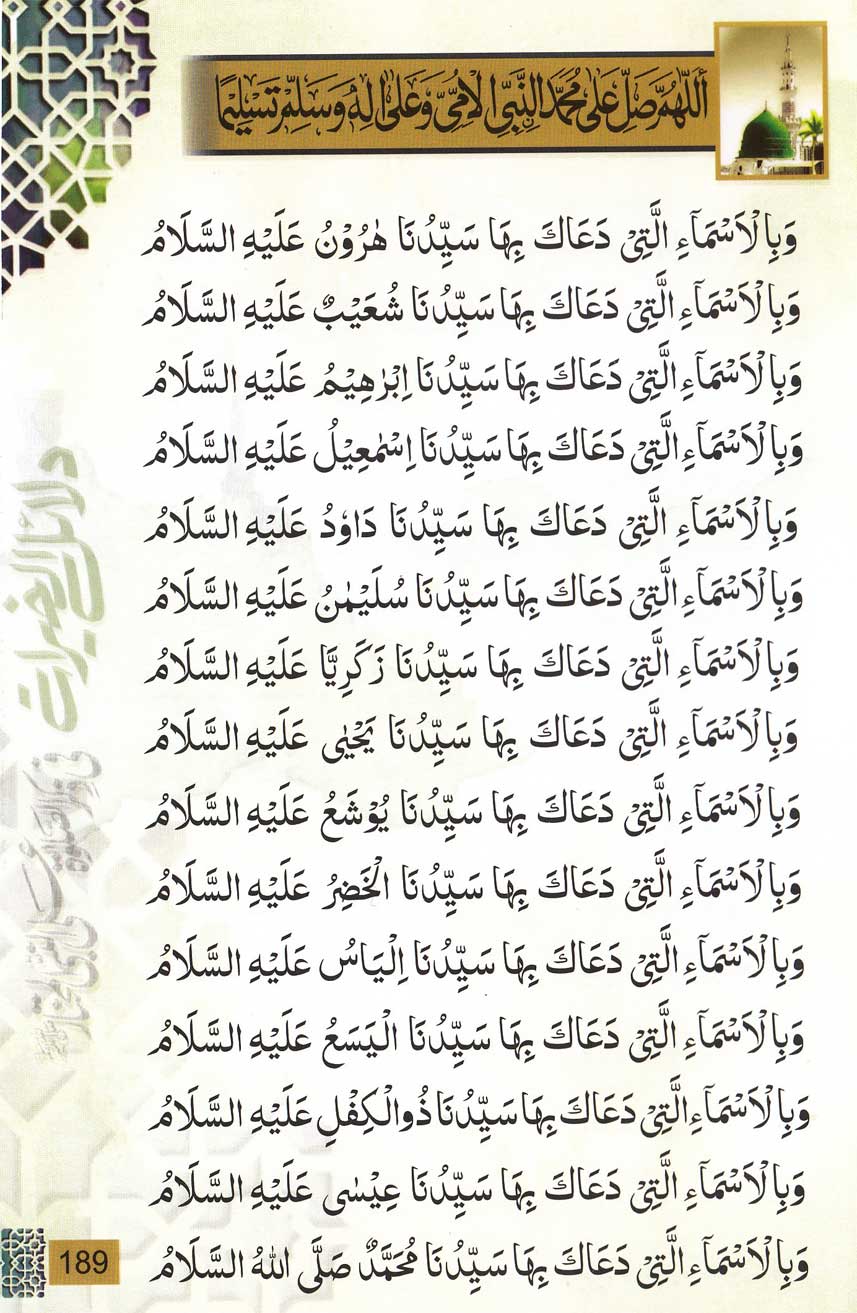 اَللّٰهُمَّ صَلِّ عَلٰی مُحَمَّدِ النَّبِیِّ الْاُمِّیِّ وَعَلٰی اٰلِهٖ وَسَلِّمْ تَسْلِیْمًا
وَبِالْاَسْمَآءِ الَّتِیْ دَعَاكَ بِهَا سَیِّدُنَا هٰرُوْنُ عَلَیْهِ السَّلَامُ
وَبِالْاَسْمَآءِ الَّتِیْ دَعَاكَ بِهَا سَیِّدُنَا شُعَیْبٌ عَلَیْهِ السَّلَامُ
وَبِالْاَسْمَآءِ الَّتِیْ دَعَاكَ بِهَا سَیِّدُنَا اِبْرٰهِیْمُ عَلَیْهِ السَّلَامُ
وَبِالْاَسْمَآءِ الَّتِیْ دَعَاكَ بِهَا سَیِّدُنَا اِسْمٰعِیْلُ عَلَیْهِ السَّلَامُ
وَبِالْاَسْمَآءِ الَّتِیْ دَعَاكَ بِهَا سَیِّدُنَا دَاوٗدُ عَلَیْهِ السَّلَامُ
وَبِالْاَسْمَآءِ الَّتِیْ دَعَاكَ بِهَا سَیِّدُنَا سُلَیْمٰنُ عَلَیْهِ السَّلَامُ
وَبِالْاَسْمَآءِ الَّتِیْ دَعَاكَ بِهَا سَیِّدُنَا زَكَرِیَّا عَلَیْهِ السَّلَامُ
وَبِالْاَسْمَآءِ الَّتِیْ دَعَاكَ بِهَا سَیِّدُنَا یَحْیٰی عَلَیْهِ السَّلَامُ
وَبِالْاَسْمَآءِ الَّتِیْ دَعَاكَ بِهَا سَیِّدُنَا یُوْشَعُ عَلَیْهِ السَّلَامُ
وَبِالْاَسْمَآءِ الَّتِیْ دَعَاكَ بِهَا سَیِّدُنَا الْخَضِرُ عَلَیْهِ السَّلَامُ
وَبِالْاَسْمَآءِ الَّتِیْ دَعَاكَ بِهَا سَیِّدُنَا اِلْیَاسُ عَلَیْهِ السَّلَامُ
وَبِالْاَسْمَآءِ الَّتِیْ دَعَاكَ بِهَا سَیِّدُنَا الْیَسَعُ عَلَیْهِ السَّلَامُ
وَبِالْاَسْمَآءِ الَّتِیْ دَعَاكَ بِهَا سَیِّدُنَا ذُوالْكِفْلِ عَلَیْهِ السَّلَامُ
وَبِالْاَسْمَآءِ الَّتِیْ دَعَاكَ بِهَا سَیِّدُنَا عِیْسٰی عَلَیْهِ السَّلَامُ
وَبِالْاَسْمَآءِ الَّتِیْ دَعَاكَ بِهَا سَیِّدُنَا مُحَمَّدٌ صَلَّی اللهُ السَّلَامُ
دلائل الخیرات
189